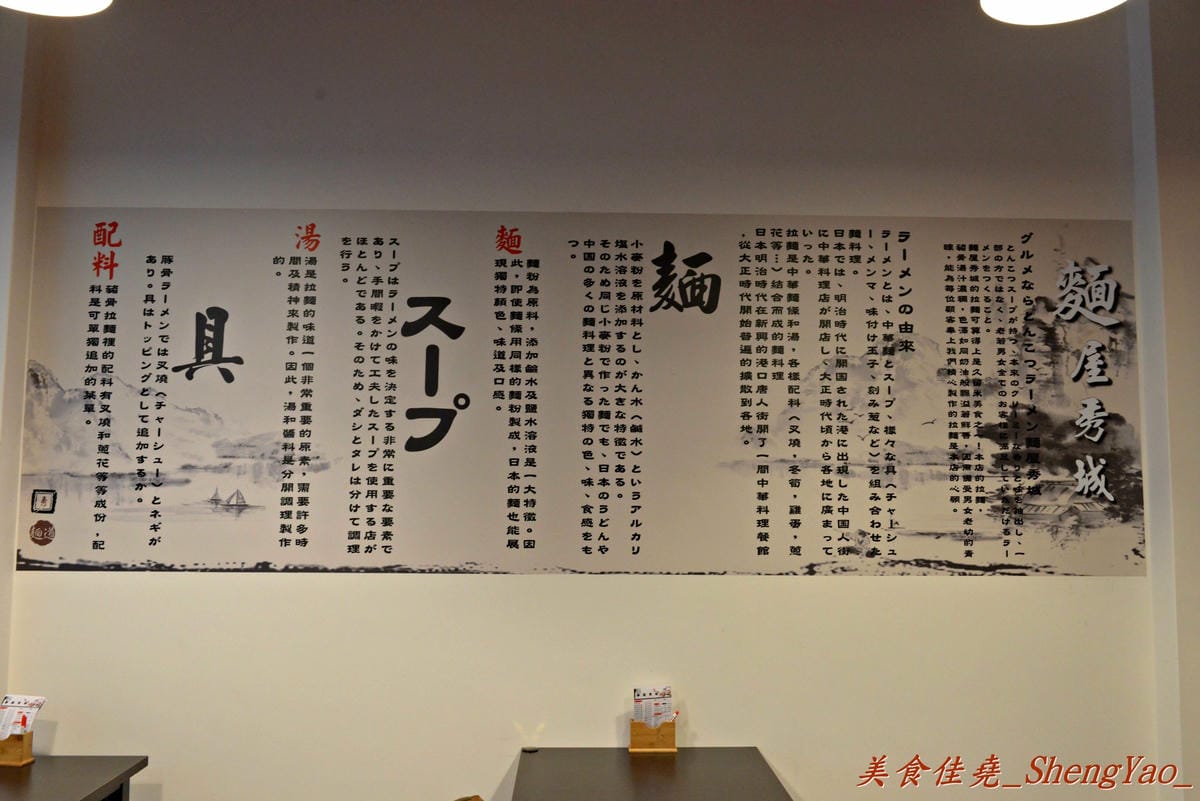 麵屋秀城
グルメならとんこつラーメン麵屋秀城
とんこつスープが持つ、本来のクリーミーな香りと味を抽出し、一
部の方ではなく、老若男女全てのお客様に満足していただけるラー
メンをつくること。
麵屋秀城的拉麵可算得上是久留米美食之一，本店的拉麵，
豬骨湯汁濃稠，色澤如同奶油般飄溢著鮮香，因而備受男女老幼的青
睞，能為每位顧客奉上我們精心製作的拉麵是本店的心願。
ラーメンの由來
ラーメンとは、中華麵とスープ、様々な具（チャーシュ
ー、メンマ、味付け玉子、刻み葱など）を組み合わせた
麵料理。
日本では、明治時代に開国された港に出現した中国人街
に中華料理店が開店し、大正時代頃から各地に廣まって
いった。
拉麵是中華麵條和湯，各樣配料（叉燒，冬筍，雞蛋，蔥
花等…）結合而成的麵料理
日本明治時代在新興的港口唐人街開了一間中華料理餐館
，從大正時代開始普遍的擴散到各地。
麺
小麥粉を原材料とし、かん水（鹹水）というアルカリ
塩水溶液を添加するのが大きな特徴である。
そのため同じ小麥粉で作った麵でも、日本のうどんや
中国の多くの麵料理と異なる獨特の色、味、食感をも
つ。
麵
麵粉為原料，添加鹼水及鹽水溶液是一大特徵。因
此，即使麵條用同樣的麵粉製成，日本的麵也能展
現獨特顏色、味道及口感。
スープ
スープはラーメンの味を決定する非常に重要な要素で
あり、手間暇をかけて工夫したスープを使用する店が
ほとんどである。そのため、ダシとタレは分けて調理
を行う。
湯
湯是拉麵的味道一個非常重要的原素，需要許多時
間及精神來製作。因此，湯和醬料是分開調理製作
的。
具
豚骨ラーメンでは叉燒（チャーシュー）とネギが
あり。具はトッピングとして追加するか。
配料
豬骨拉麵裡的配料有叉燒和蔥花等等成份，配
料是可單獨追加的菜單。
美食佳堯_ShengYao_